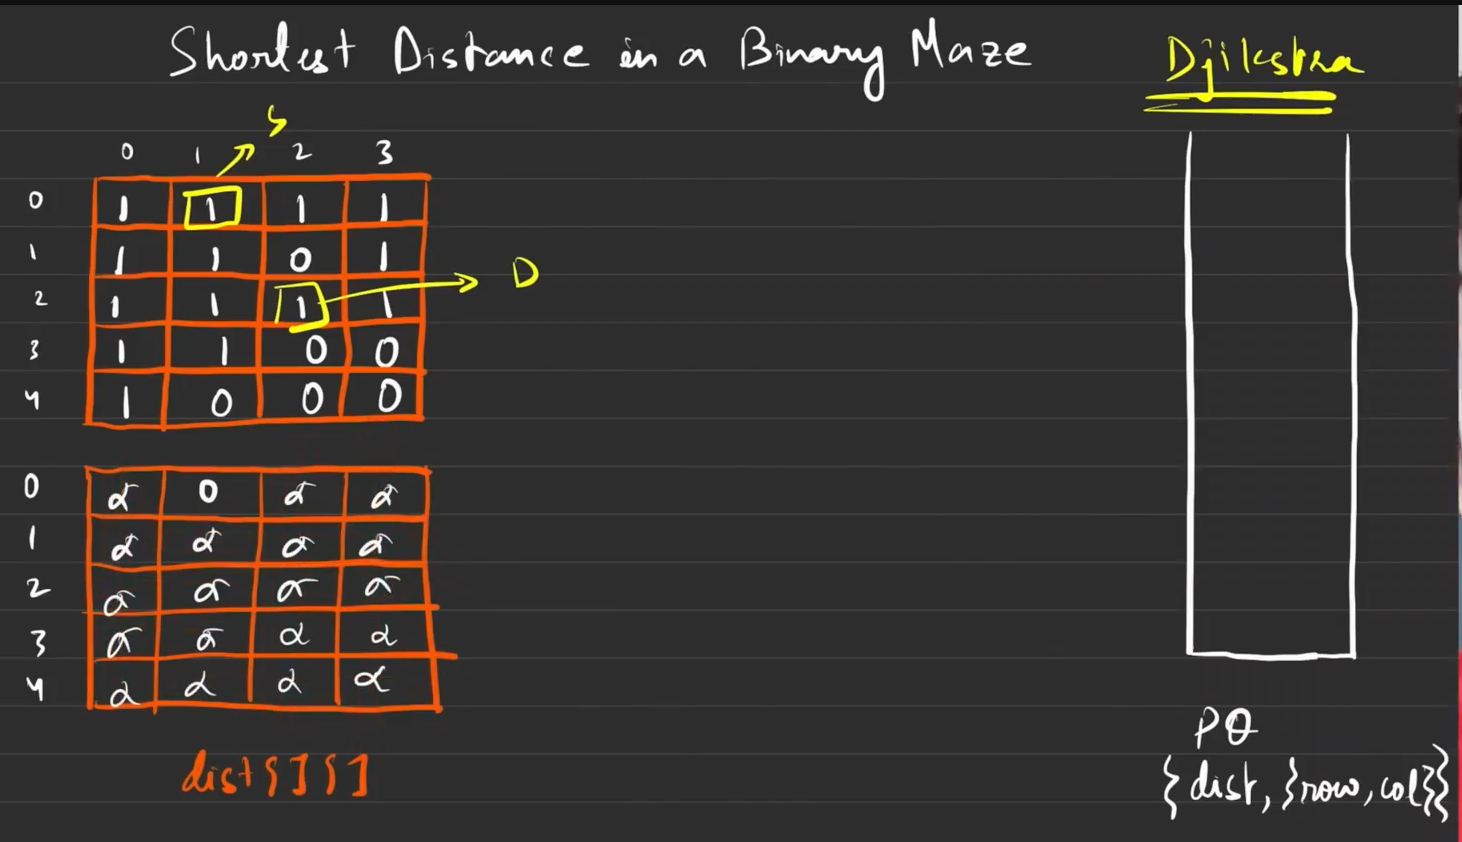 Shortest Distance in a Binary Maze
Djikstra
S
0 1 2 3
0 1 1 1 1
1 1 1 0 1
D
2 1 1 1 1
3 1 1 0 0
4 1 0 0 0
0 α 0 α α
1 α α α α
2 α α α α
3 α α α α
4 α α α α
dist[][]
PQ
{dist, {row, col}}